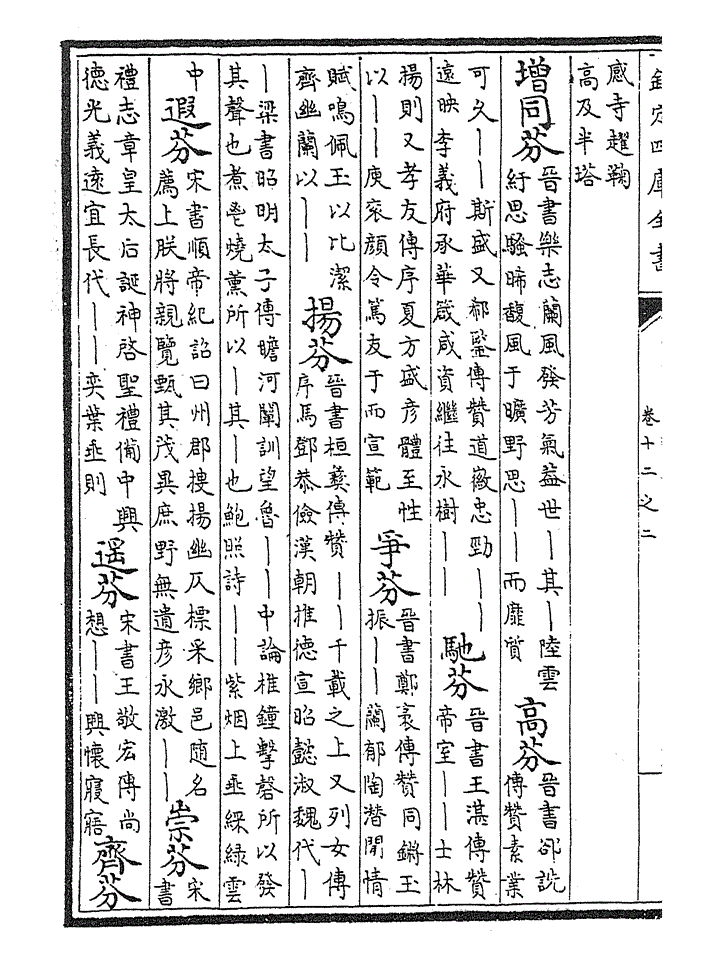 欽定四庫全書
卷十二之二
感寺趯鞠
高及半塔
增同芬
晉書樂志蘭風發芳氣葢世丨其丨陸雲
紆思騷晞馥風于曠野思丨丨而靡質
高芬
晉書郤詵
傳贊素業
可久丨丨斯盛又郗鑒傳贊道徽忠勁丨丨
遠映李義府承華箴咸資繼往永樹丨丨
馳芬
晉書王湛傳贊
帝室丨丨士林
揚則又孝友傳序夏方盛彦體至性
以丨丨庾衮顔令篤友于而宣範
爭芬
晉書鄭袤傳贊同鏘玉
振丨丨蘭郁陶潛閒情
賦鳴佩玉以比潔
齊幽蘭以丨丨
揚芬
晉書桓彝傳贊丨丨千載之上又列女傳
序馬鄧恭儉漢朝推德宣昭懿淑魏代丨
丨梁書昭明太子傳瞻河闡訓望魯丨丨中論椎鐘擊磬所以發
其聲也煮鬯燒薰所以丨其丨也鮑照詩丨丨紫烟上垂綵緑雲
中
遐芬
宋書順帝紀詔曰州郡搜揚幽仄標采鄉邑隨名
薦上朕將親覽甄其茂異庶野無遺彦永激丨丨
崇芬
宋
書
禮志章皇太后誕神啓聖禮備中興
德光義遠宜長代丨丨奕葉垂則
遥芬
宋書王敬宏傳尚
想丨丨興懷寢寤
齊芬